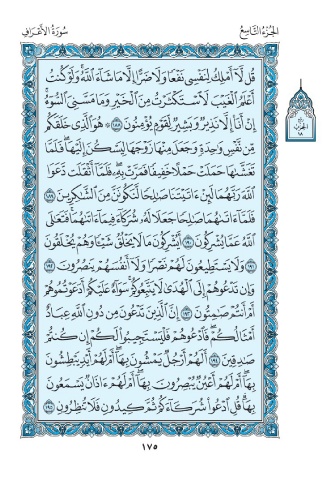 الجزء التاسع
سورة الأعراف
قُل لَّآ أَمْلِكُ لِنَفْسِى نَفْعًا وَلَا ضَرًّا إِلَّا مَا شَآءَ ٱللَّهُ وَلَوْ كُنتُ
أَعْلَمُ ٱلْغَيْبَ لَٱسْتَكْثَرْتُ مِنَ ٱلْخَيْرِ وَمَا مَسَّنِىَ ٱلسُّوٓءُ
إِنْ أَنَا۠ إِلَّا نَذِيرٌ وَبَشِيرٌ لِّقَوْمٍ يُؤْمِنُونَ ١٨٨ هُوَ ٱلَّذِى خَلَقَكُم
مِّن نَّفْسٍ وَٰحِدَةٍ وَجَعَلَ مِنْهَا زَوْجَهَا لِيَسْكُنَ إِلَيْهَا فَلَمَّا
تَغَشَّىٰهَا حَمَلَتْ حَمْلًا خَفِيفًا فَمَرَّتْ بِهِۦ فَلَمَّآ أَثْقَلَت دَّعَوَا
ٱللَّهَ رَبَّهُمَا لَئِنْ ءَاتَيْتَنَا صَٰلِحًا لَّنَكُونَنَّ مِنَ ٱلشَّٰكِرِينَ ١٨٩
فَلَمَّآ ءَاتَىٰهُمَا صَٰلِحًا جَعَلَا لَهُۥ شُرَكَآءَ فِيمَآ ءَاتَىٰهُمَا فَتَعَٰلَى
ٱللَّهُ عَمَّا يُشْرِكُونَ ١٩٠ أَيُشْرِكُونَ مَا لَا يَخْلُقُ شَيْـًٔا وَهُمْ يُخْلَقُونَ
١٩١ وَلَا يَسْتَطِيعُونَ لَهُمْ نَصْرًا وَلَآ أَنفُسَهُمْ يَنصُرُونَ ١٩٢
وَإِن تَدْعُوهُمْ إِلَى ٱلْهُدَىٰ لَا يَتَّبِعُوكُمْ سَوَآءٌ عَلَيْكُمْ أَدَعَوْتُمُوهُمْ
أَمْ أَنتُمْ صَٰمِتُونَ ١٩٣ إِنَّ ٱلَّذِينَ تَدْعُونَ مِن دُونِ ٱللَّهِ عِبَادٌ
أَمْثَالُكُمْ فَٱدْعُوهُمْ فَلْيَسْتَجِيبُوا۟ لَكُمْ إِن كُنتُمْ
صَٰدِقِينَ ١٩٤ أَلَهُمْ أَرْجُلٌ يَمْشُونَ بِهَآ أَمْ لَهُمْ أَيْدٍ يَبْطِشُونَ
بِهَآ أَمْ لَهُمْ أَعْيُنٌ يُبْصِرُونَ بِهَآ أَمْ لَهُمْ ءَاذَانٌ يَسْمَعُونَ
بِهَا قُلِ ٱدْعُوا۟ شُرَكَآءَكُمْ ثُمَّ كِيدُونِ فَلَا تُنظِرُونِ ١٩٥
الحزب
١٨
١٧٥